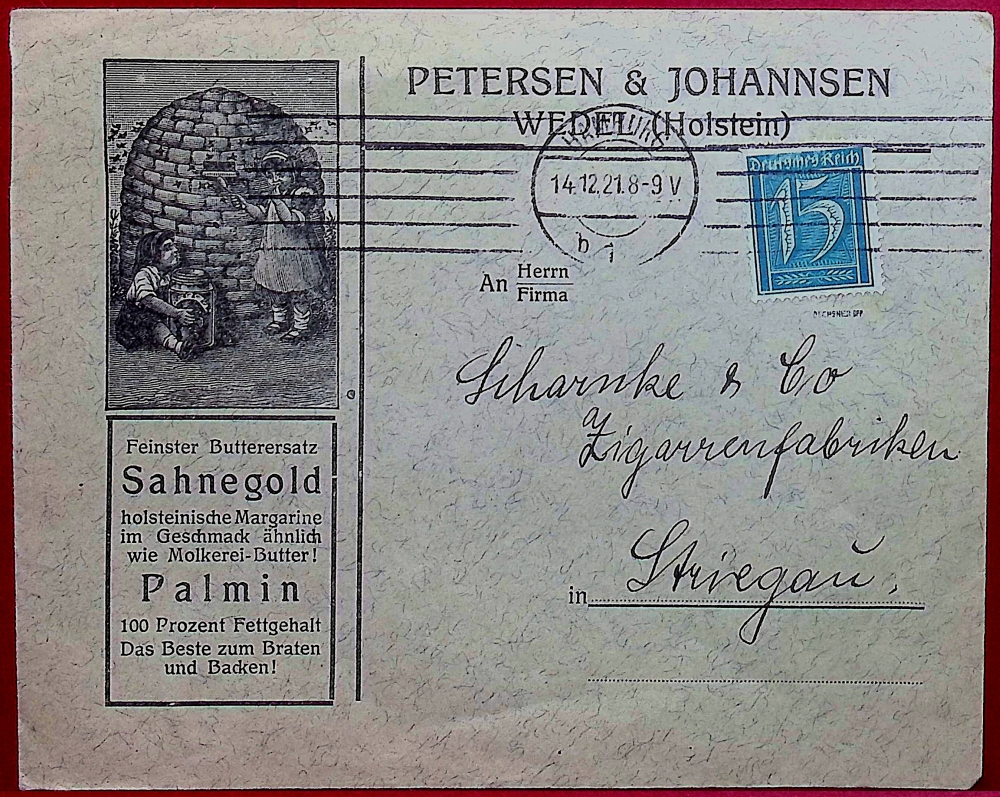 PETERSEN & JOHANNSEN
WEDEL (Holstein)
14.12.21.8-9 V
b 1
Deutsches Reich
15
An Herrn
Firma
Scharnke & Co
Zigarrenfabriken
in Striegau.
Feinster Butterersatz
Sahnegold
holsteinische Margarine
im Geschmack ähnlich
wie Molkerei-Butter!
Palmin
100 Prozent Fettgehalt
Das Beste zum Braten
und Backen!